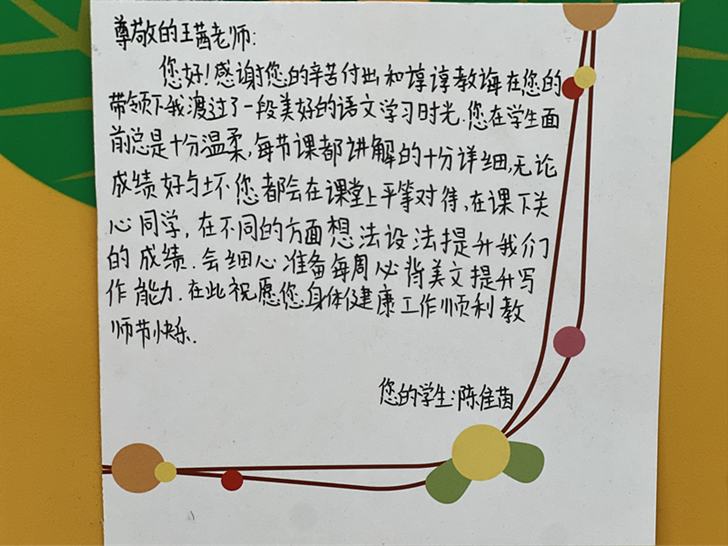 尊敬的王茜老师:
您好!感谢您的辛苦付出和谆谆教诲在您的
带领下我渡过了一段美好的语文学习时光.您在学生面
前总是十分温柔,每节课都讲解的十分详细,无论
成绩好与坏您都会在课堂上平等对待,在课下关
心同学,在不同的方面想法设法提升我们
的成绩.会细心准备每周必背美文提升写
作能力.在此祝愿您身体健康工作顺利教
师节快乐.
您的学生:陈佳茵